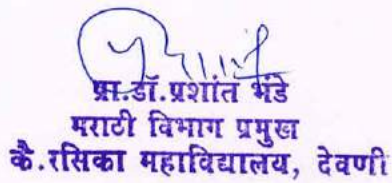 प्रा.डॉ.प्रशांत भंडे
मराठी विभाग प्रमुख
कै.रसिका महाविद्यालय, देवणी